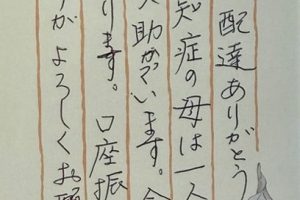 配達ありがとう
知症の母は一人
助かっています。
ります。口座振
がよろしくお